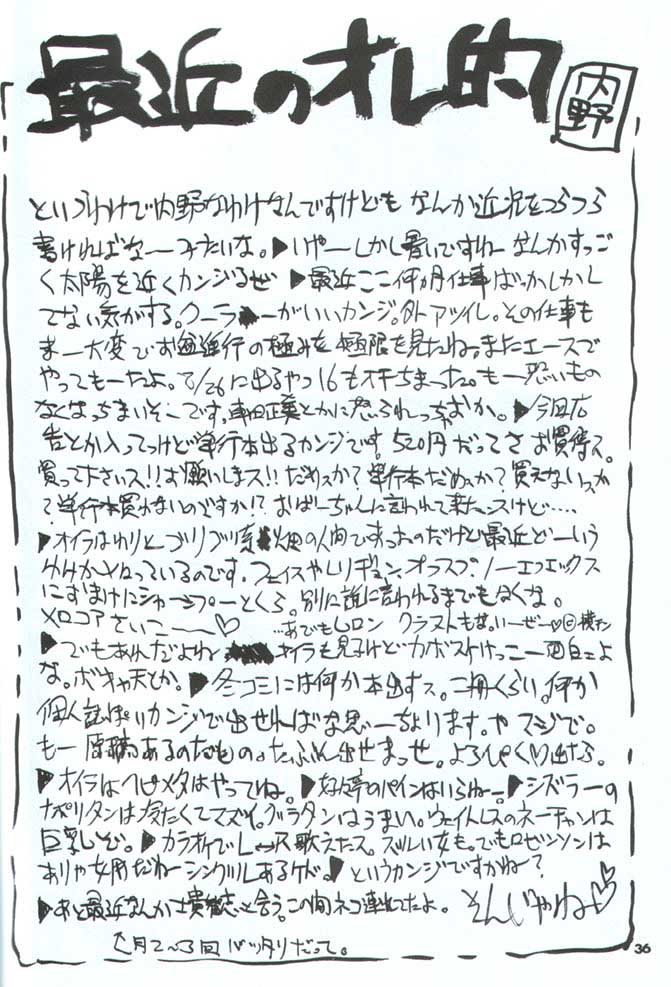 最近のオレ的
内野
というわけで内野なわけなんですけども なんか近況をつらつら
書ければなーみたいな。▶いやーしかし暑いですねーなんかすっご
く太陽を近くカンジるぜ ▶最近ここ何ヵ月仕事ばっかしかし
てない気がする。クーラーがいいカンジ。外アツイし。その仕事も
まー大変です 進行の極みを 極限を見たね。またエースで
やってもーたよ。8/26に出るやつ16もオチちまった。もー恐いもの
なくなっちまいそーです。車田正美とかに怒られっちまおか。▶今回広
告とか入ってっけど単行本出るカンジです。520円だってさ お買得ス。
買って下さいス!!お願いしまス!!だめスか?単行本だめスか?買えないスか
?単行本買わないのですか!?おばーちゃんに言われて来たスけど……
▶オイラはわりと ゴリゴリ系 畑の人間ですったのだけど最近どーいう
ワケか ているのです。フェイスやレリヂョン、オブスプ、ノーエフエックス
にすまけにシャー 。別に誰に言われるまでもなくな。
メロコアさいこ〜〜♡ …あでもムロン クラストも 横チン
▶でもあれだよね オイラも見っけどカボスけっこー面白ェよ
な。ボキャ天とか。▶冬コミには何か本出すス。二冊くらい。何か
個人誌ぽいカンジで出せればな思ーちょります。や マジで。
もー原稿あるのだもの。たぶん出せまっせ。よろぴく♡出たら。
▶オイラはヘビメタはやってね。▶ パインはいらねー。▶シズラーの
ナポリタンは冷たくてマズイ。グラタンはうまい。ウェイトレスのネーチャンは
巨乳 。▶カラオケで 歌えたス。ズルい女も。でもロゼンソンは
ありゃ女用だわーシングルあるケド。▶というカンジですかね〜?
▶あと最近なんか士貴智志と会う。この間ネコ連れてたよ。そんじゃね♡♡
月2〜3回バッタリだって。
36